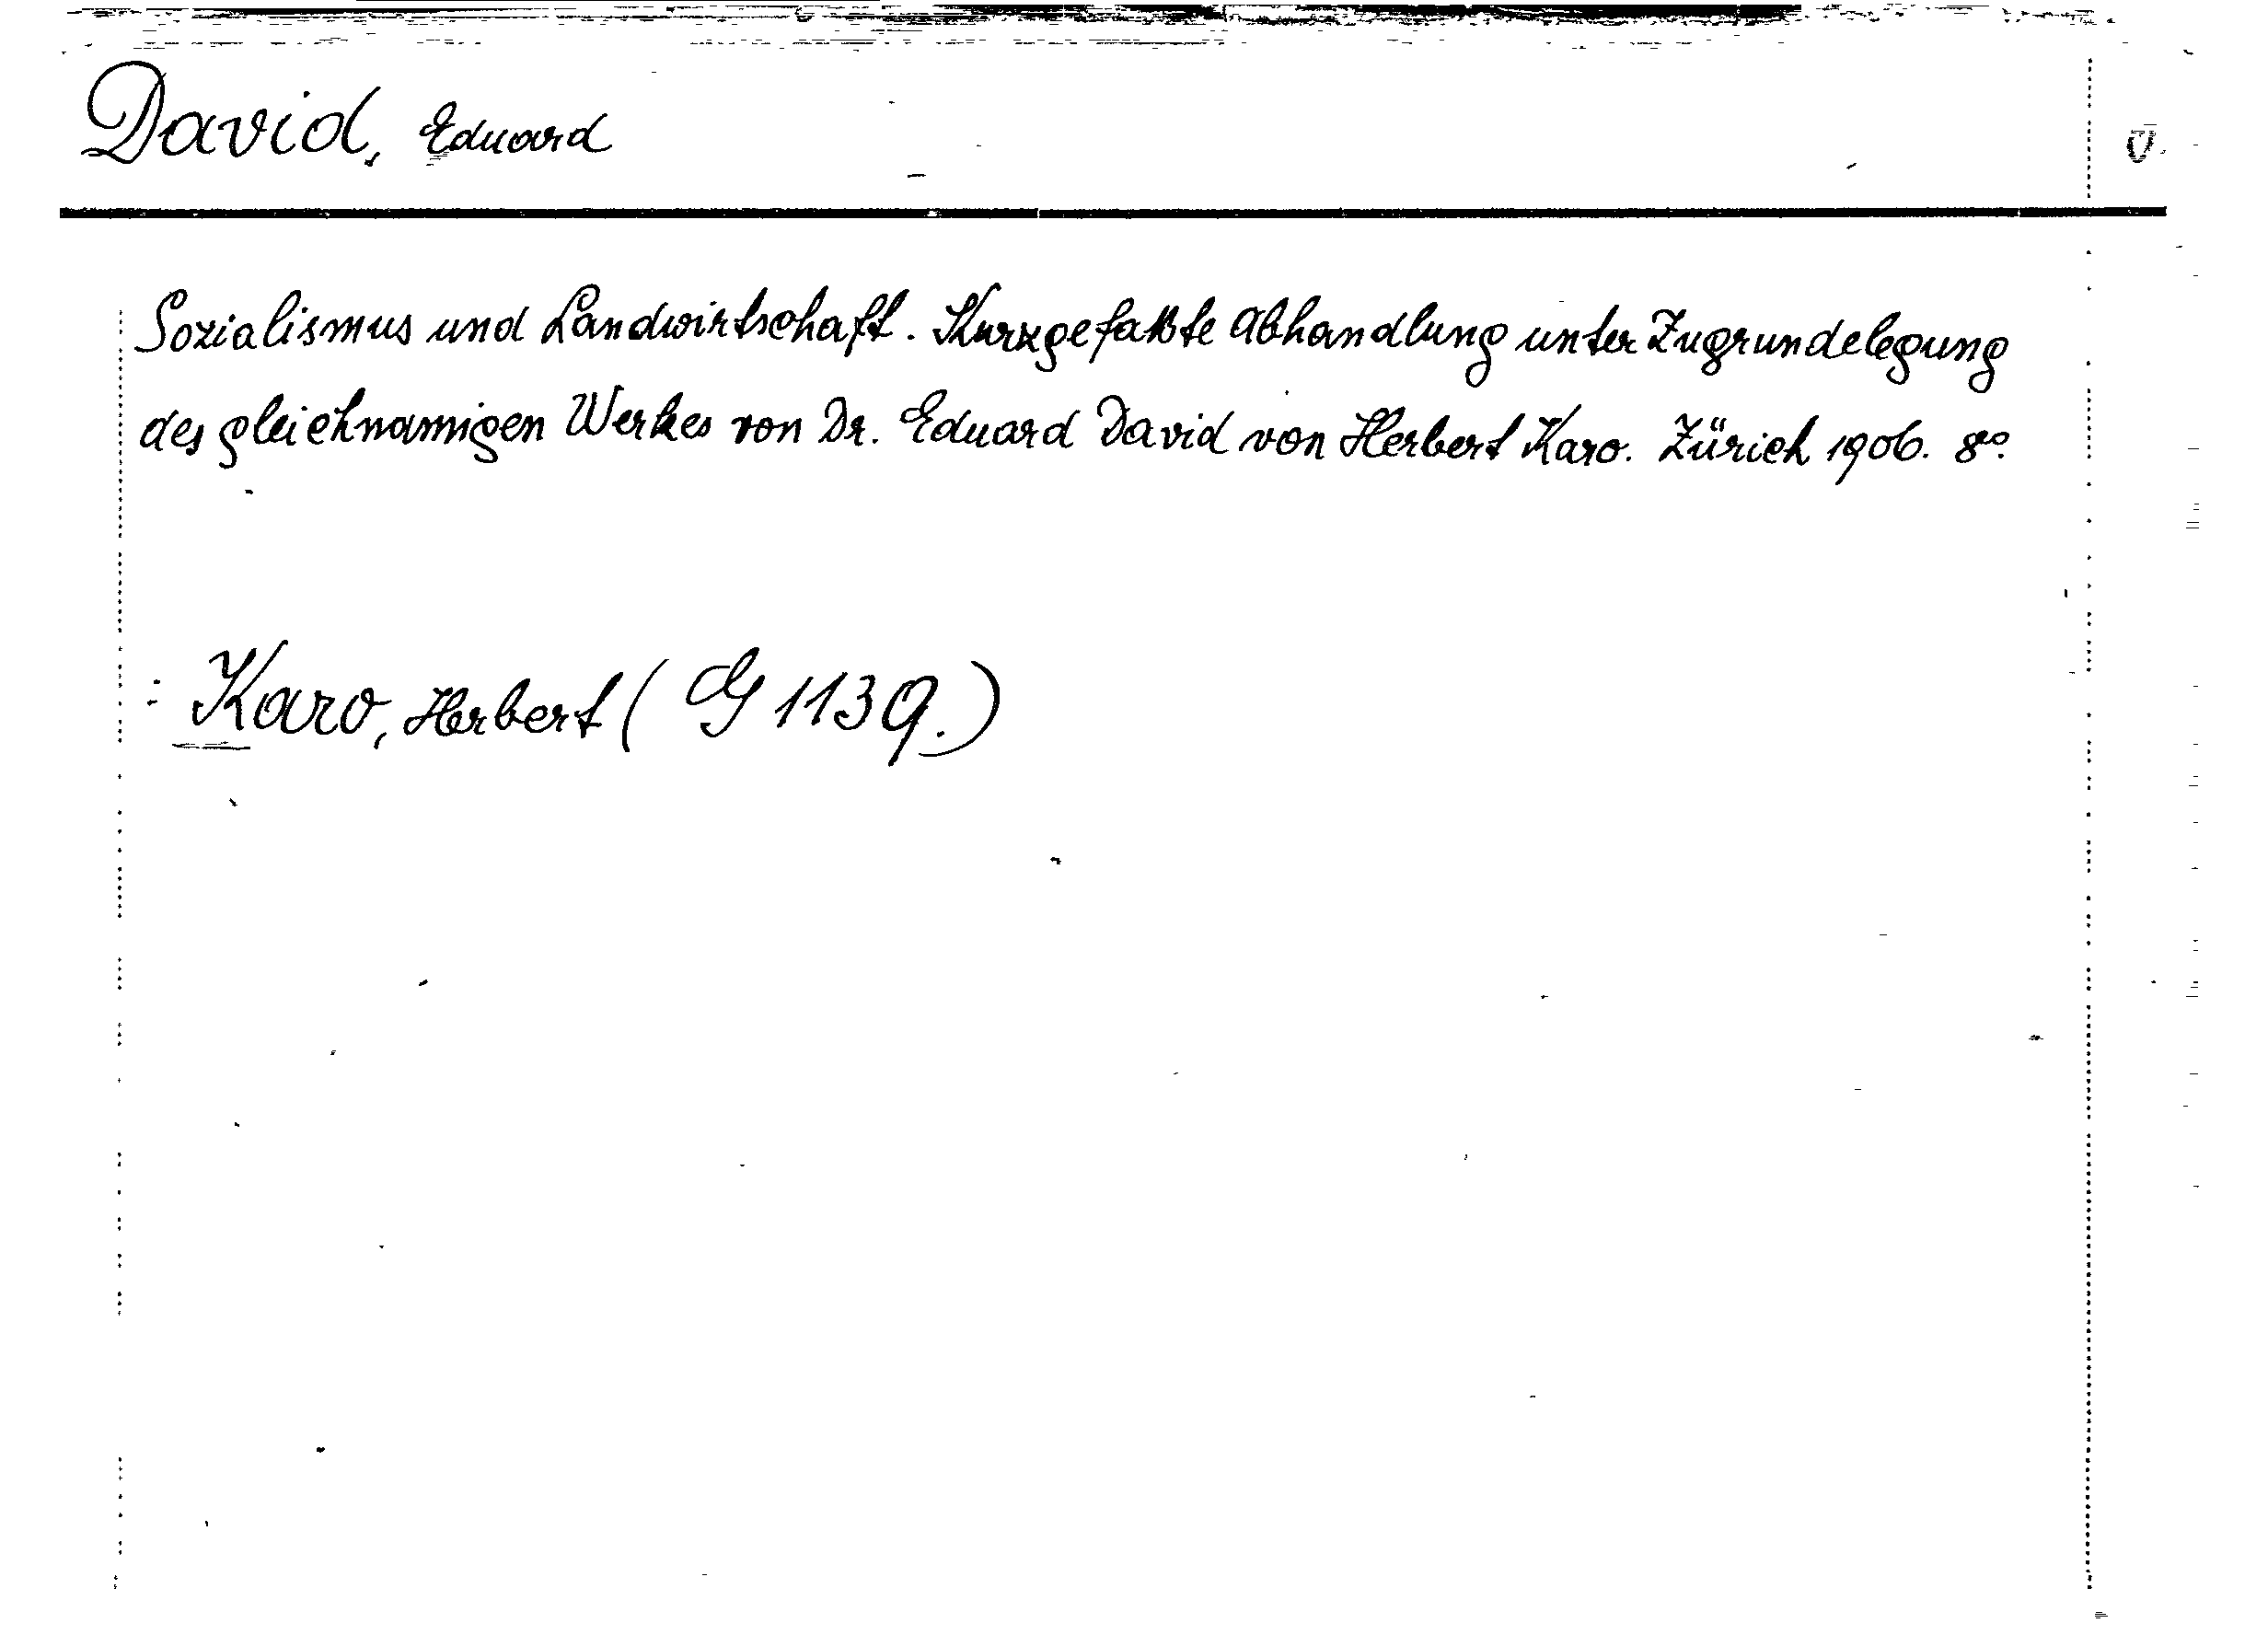 David, Eduard
Sozialismus und Landwirtschaft. Kurzgefaßte Abhandlung unter Zugrundelegung
des gleichnamigen Werkes von Dr. Eduard David von Herbert Karo. Zürich 1906. 8°.
: Karo, Herbert (G 1139.)